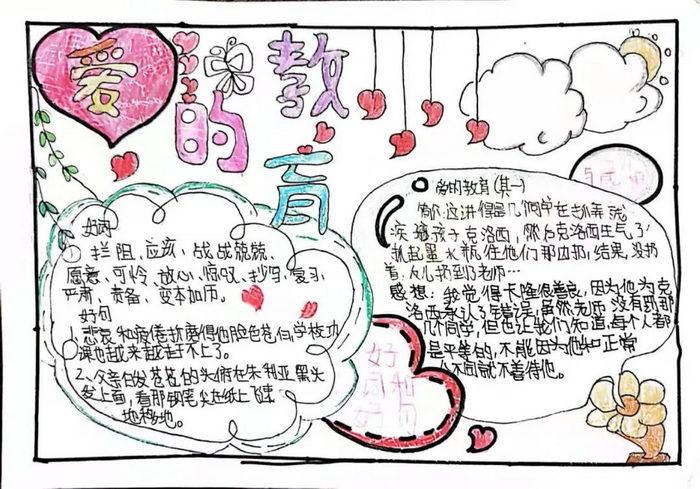 爱的教育
好词
①拦阻、应该、战战兢兢、
愿意、可怜、放心、惊叹、抄写、复习、
严肃、责备、变本加厉。
好句
1.悲哀和疲倦折磨得他脸色苍白,学校功
课也越来越赶不上了。
2、父亲白发苍苍的头俯在朱利亚黑头
发上面,看那钢笔尖在纸上飞速
地移动。
爱的教育(其一)
简介:这讲得是几个同学在
疾孩子克洛西,然后克洛西生气了
抓起墨水瓶往他们那边扔,结果,没扔
着,反儿扔到了老师…
感想:我觉得卡隆很善良,因为他为克
洛西承认了错误,虽然老师没有
几个同学,但也让我们知道,每个人都
是平等的,不能因为他和正常
人不同就不善待他。
好
词和
好句